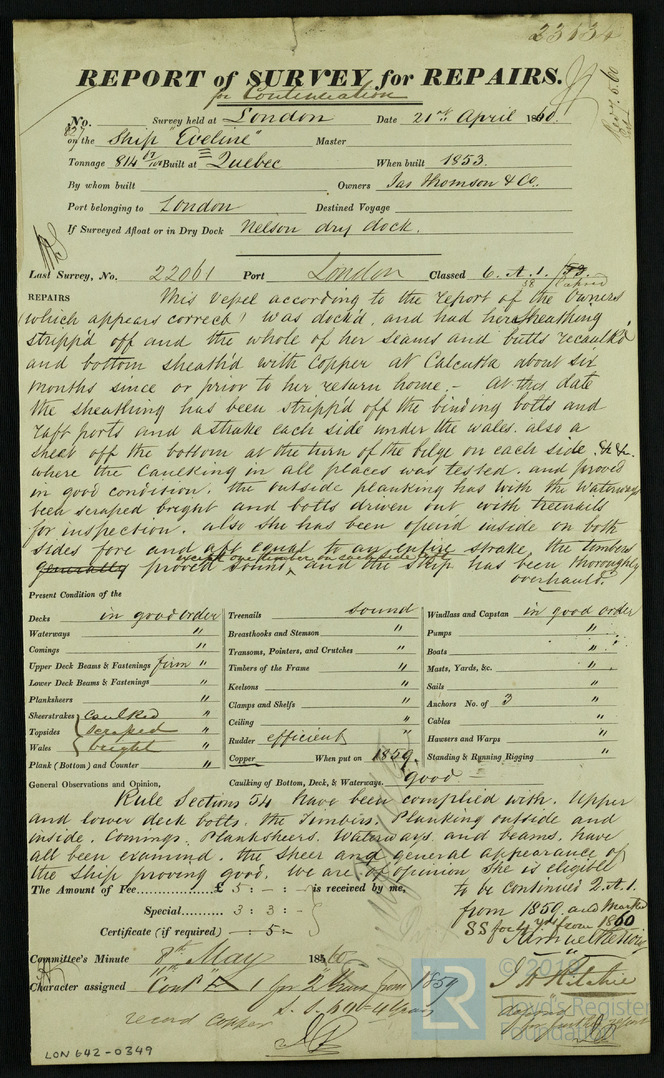 REPORT of SURVEY for REPAIRS.
for Continuation
No. Survey held at London Date 21st April 1860.
on the Ship "Eveline" Master
Tonnage 814 67/100 Built at Quebec When built 1853.
By whom built Owners Jas Thomson & Co.
Port belonging to London Destined Voyage
If Surveyed Afloat or in Dry Dock Nelson dry dock.
Last Survey, No. 22061 Port London Classed 6. A. 1.
58 Expired
REPAIRS This Vessel according to the report of the Owners
(which appears correct) was dock'd, and had her sheathing
stripp'd off and the whole of her seams and butts recaulk'd
and bottom sheath'd with Copper at Calcutta about six
months since or prior to her return home. - At this date
the sheathing has been stripp'd off the binding bolts and
raft ports and a strake each side under the wales. also a
sheet off the bottom at the turn of the bilge on each side &c &c.
where the caulking in all places was tested. and proved
in good condition, the outside planking has with the Waterways
been scraped bright and bolts driven out with treenails
for inspection, also she has been opend inside on both
sides fore and aft equal to an entire strake, the timbers
except one timber on each side
generally proved sound, and the Ship has been thoroughly
overhauld.
Present Condition of the
Decks in good order
Waterways "
Comings "
Upper Deck Beams & Fastenings firm "
Lower Deck Beams & Fastenings "
Planksheers "
Sheerstrakes caulked "
Topsides scraped "
Wales bright "
Plank (Bottom) and Counter "
Treenails sound
Breasthooks and Stemson "
Transoms, Pointers, and Crutches "
Timbers of the Frame "
Keelsons "
Clamps and Shelfs "
Ceiling "
Rudder efficient "
Copper When put on 1859.
Caulking of Bottom, Deck, & Waterways. good
Windlass and Capstan in good order
Pumps "
Boats "
Masts, Yards, &c. "
Sails "
Anchors No. of 3 "
Cables "
Hawsers and Warps "
Standing & Running Rigging "
General Observations and Opinion,
Rule Sections 54 have been complied with. Upper
and lower deck bolts. the Timbers. Planking outside and
inside. Comings, Planksheers. Waterways. and beams. have
all been examined. the sheer and general appearance of
the Ship proving good. We are of opinion she is eligible
to be continued 2. A. 1.
from 1859. and Marked
SS for 4 yrs from 1860
The Amount of Fee £ 5 : - : - is received by me,
Special 3 : 3 : -
Certificate (if required) - : 5 : -
Committee's Minute 8th May 1860
Character assigned Contd A 1 for 2 Years from 1859
record copper
J H Ritchie
© 2019
LR
Lloyd's Register
Foundation
LON 642-0349